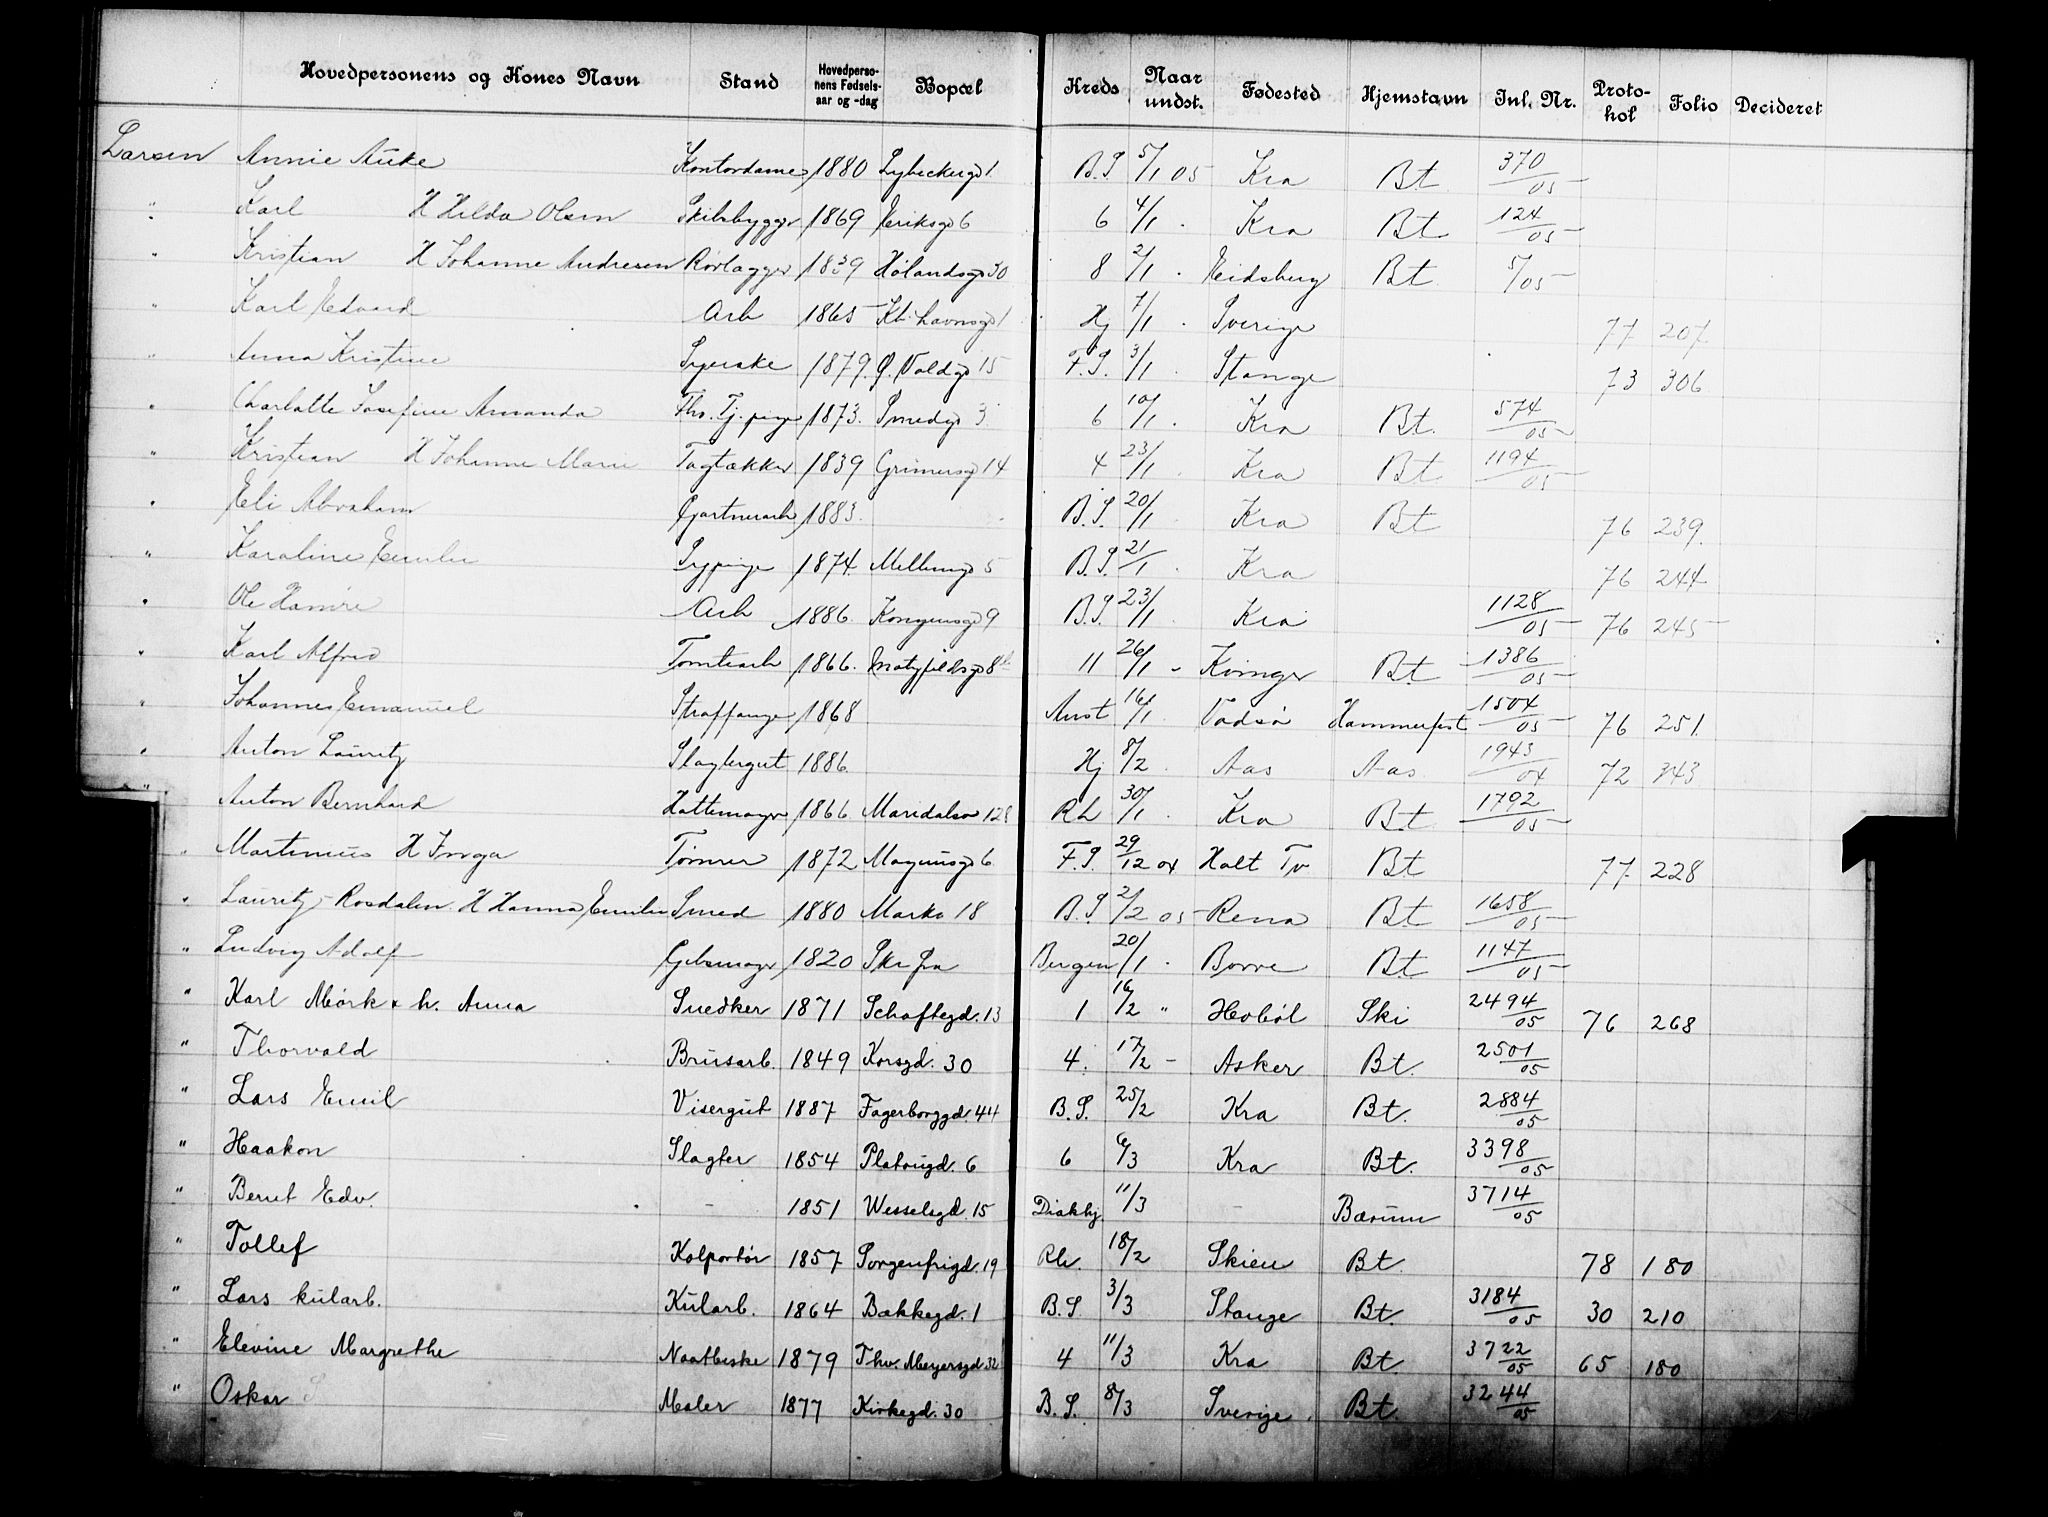 Hovedpersonens og Kones Navn Stand Hovedperso-nens Fødsels-aar og -dag Bopæl Kreds Naar undst. Fødested Hjemstavn Inl. Nr. Proto-kol Folio Decideret
Larsen Annie Auke Kontordame 1880 Lybeckergd 1. B.S. 5/1 05 Kra Bt 370/05
" Karl H Hilda Olsen Skibsbygger 1869 Eriksgd 6 6 4/1 . Kra Bt 124/05
" Kristian H Johanne Andresen Rørlægger 1839 Hølandsgd 30 8 2/1 . Eidsberg Bt 5/05
" Karl Edvard Arb 1865 Kb.havnsgd 1 Hj 7/1 . Sverige 77 207.
" Anna Kristine Syerske 1879. Ø. Voldgd 15 F.S. 3/1 . Stange 73 306
" Charlotte Josefine Amanda Fhv. Tj. pige 1873. Smedgd 3 6 10/1 . Kra Bt. 574/05
" Kristian H Johanne Marie Tagtækker 1839 Grimersgd 14 4 23/1 . Kra Bt 1194/05
" Eli Abraham Gartnerarb 1883. B.S. 20/1 . Kra Bt 76 239.
" Karoline Emilie Sypige 1874. Mellemgd 5 B.S. 21/1 . Kra 76 244
" Ole Kongensgd 9 Arb 1886. B.S. 23/1 . Kra 1128/05 76 245
" Karl Alfred Tomtearb 1866. 11 26/1 - Kvinger Bt 1386/05
" Johannes Emanuel Straffange 1868 Anst 16/1 . Vadsø Hammerfest 1504/05 76 251.
" Anton Lauritz Slagtergut 1886. Hj 8/2 . Aas Aas 1943/04 72 343
" Anton Bernhard Hattemager 1866. Maridalsv 128 Rh 30/1 . Kra Bt 1792/05
" Martinius H Inga Tømrer 1872 Magnusgd 6 F.S. 29/12 04 Holt Tv Bt 77 228
" Lauritz Rosdalen H Hanna Emilie Smed 1880 Markv 18 B.S 2/2 05 Rena Bt 1658/05
" Ludvig Adolf Gibsmager 1820 Skr fra Bergen 20/1 . Borre Bt 1147/05
" Karl Mørk & h. Anna Snedker 1871 Schaftegd. 13 1 16/2 " Hobøl Ski 2494/05 76 268
" Thorvald Brusarb. 1849 Korsgd. 30 4. 17/2 - Asker Bt. 2501/05
" Lars Emil Visergut 1887 Fagerborggd. 44 B.S. 25/2 Kra Bt. 2884/05
" Haakon Slagter 1854 Platougd. 6 6 6/3 Kra Bt. 3398/05
" Bernt Edv. - 1851 Wesselsgd. 15 Diakhj. 11/3 - Bærum 3714/05
" Tollef Kolportør 1857 Sorgenfrigd. 19 Rh. 18/2 Skien Bt. 78 180
" Lars kularb. Kularb. 1864 Bakkegd. 1 B.S. 3/3 Stange Bt. 3184/05 30 210
" Elevine Margrethe Naatleske 1879 Thv. Meyersgd. 32 4 11/3 Kra Bt. 3722/05 65 180
" Oskar S Maler 1877 Kirkegd. 30 B.S. 8/3 Sverige. Bt. 3244/05